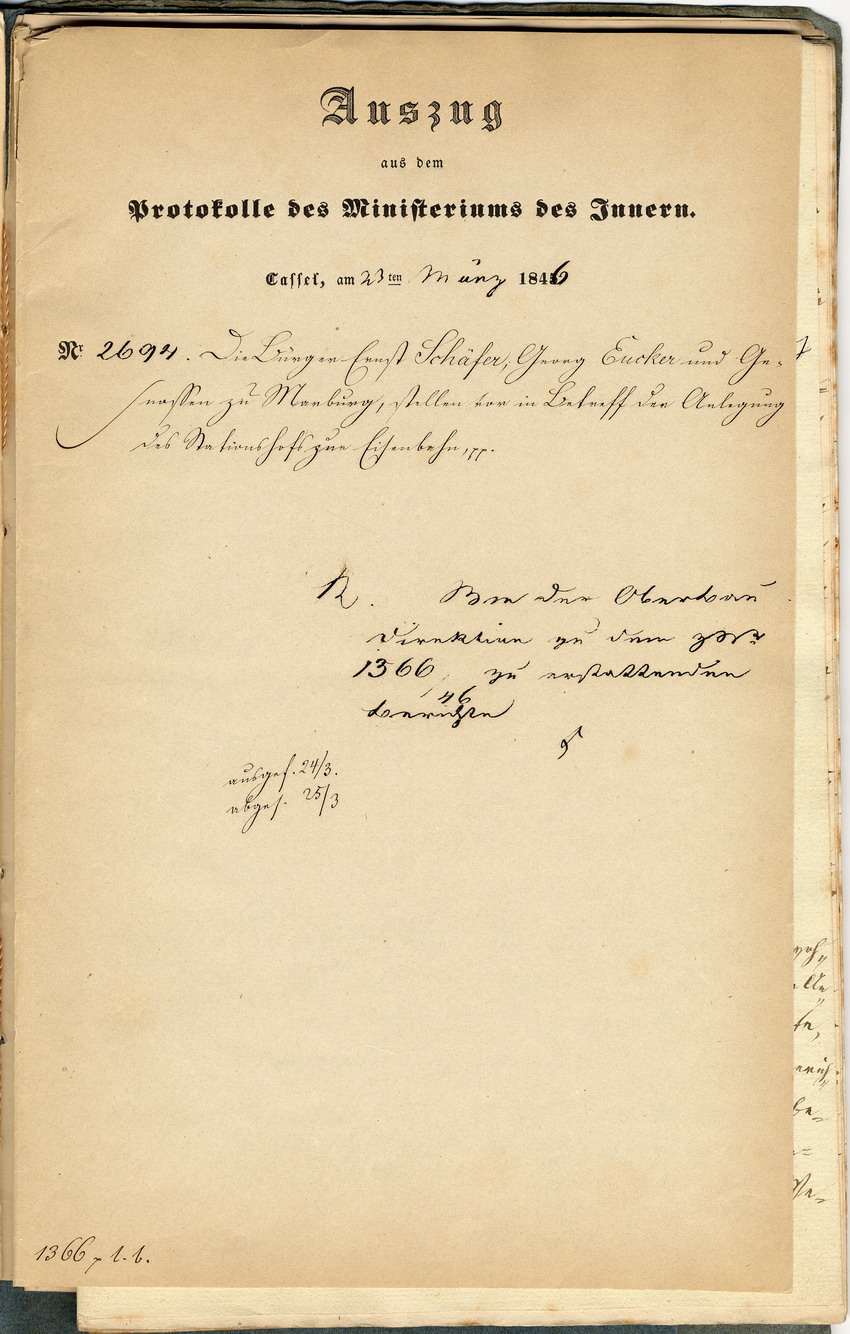 Auszug
aus dem
Protokolle des Ministeriums des Innern.
Cassel, am 23ten März 1846
Nr 2694. Die Bürger Ernst Schäfer, Georg Eucker und Ge-
nossen zu Marburg, stellen vor in Betreff der Anlegung
des Stationshofs zur Eisenbahn, pp.
R. der Oberbau
direktion zu dem
1366 zu erstattenden
berichte
ausgef. 24/3.
abges. 25/3
1366